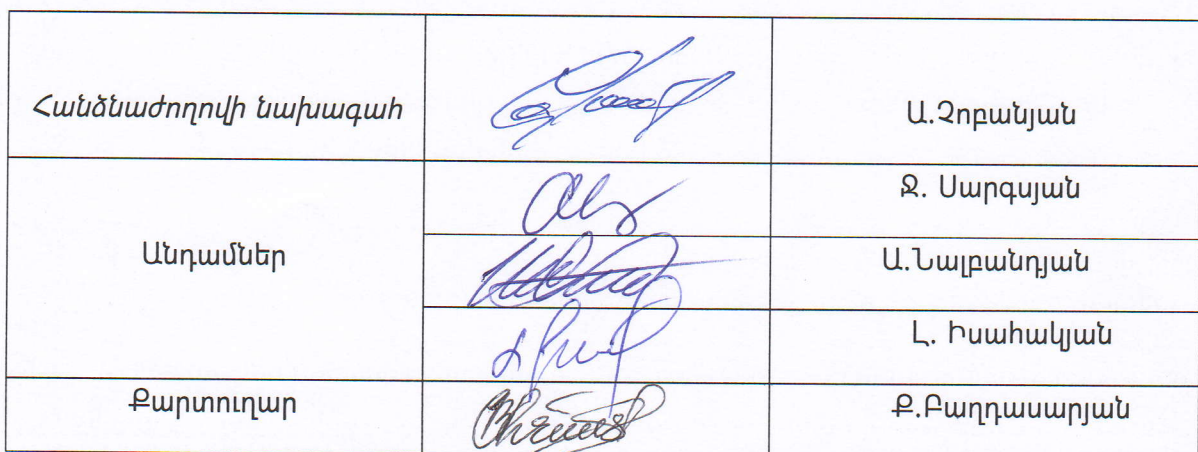 Հանձնաժողովի նախագահ
Ա.Չոբանյան
Ջ. Սարգսյան
Անդամներ
Ա.Նալբանդյան
Լ. Իսահակյան
Քարտուղար
Ք.Բաղդասարյան